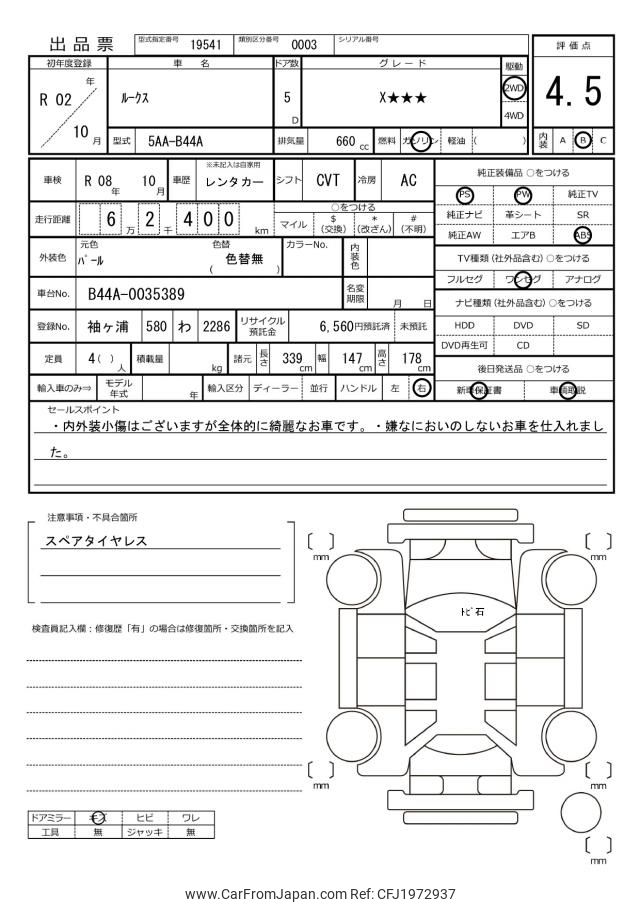 出品票 型式指定番号 19541 類別区分番号 0003 シリアル番号
評価点
4.5
内装 A B C
初年度登録 車名 ドア数 グレード 駆動
R 02 年 ルークス 5 D X★★★ 2WD
4WD
10 月 型式 5AA-B44A 排気量 660 cc 燃料 ガソリン 軽油 ( )
車検 R 08 年 10 月 車歴 ※未記入は自家用 レンタカー シフト CVT 冷房 AC
走行距離 6 万 2 千 4 0 0 km
○をつける
マイル $ (交換) * (改ざん) # (不明)
外装色 元色 パール 色替 ( 色替無 ) カラーNo. 内装色
車台No. B44A-0035389 名変期限 月 日
登録No. 袖ヶ浦 580 わ 2286 リサイクル預託金 6,560円預託済 未預託
定員 4( ) 人 積載量 kg 諸元 長さ 339 cm 幅 147 cm 高さ 178 cm
輸入車のみ⇒ モデル年式 年 輸入区分 ディーラー 並行 ハンドル 左 右
純正装備品 ○をつける
PS PW 純正TV
純正ナビ 革シート SR
純正AW エアB ABS
TV種類 (社外品含む) ○をつける
フルセグ ワンセグ アナログ
ナビ種類 (社外品含む) ○をつける
HDD DVD SD
DVD再生可 CD
後日発送品 ○をつける
新車保証書 車輌取説
セールスポイント
・内外装小傷はございますが全体的に綺麗なお車です。・嫌なにおいのしないお車を仕入れまし
た。
注意事項・不具合箇所
スペアタイヤレス
検査員記入欄：修復歴「有」の場合は修復箇所・交換箇所を記入
[ ] mm
[ ] mm
トビ石
[ ] mm
[ ] mm
[ ] mm
ドアミラー キズ ヒビ ワレ
工具 無 ジャッキ 無
www.CarFromJapan.com Ref: CFJ1972937